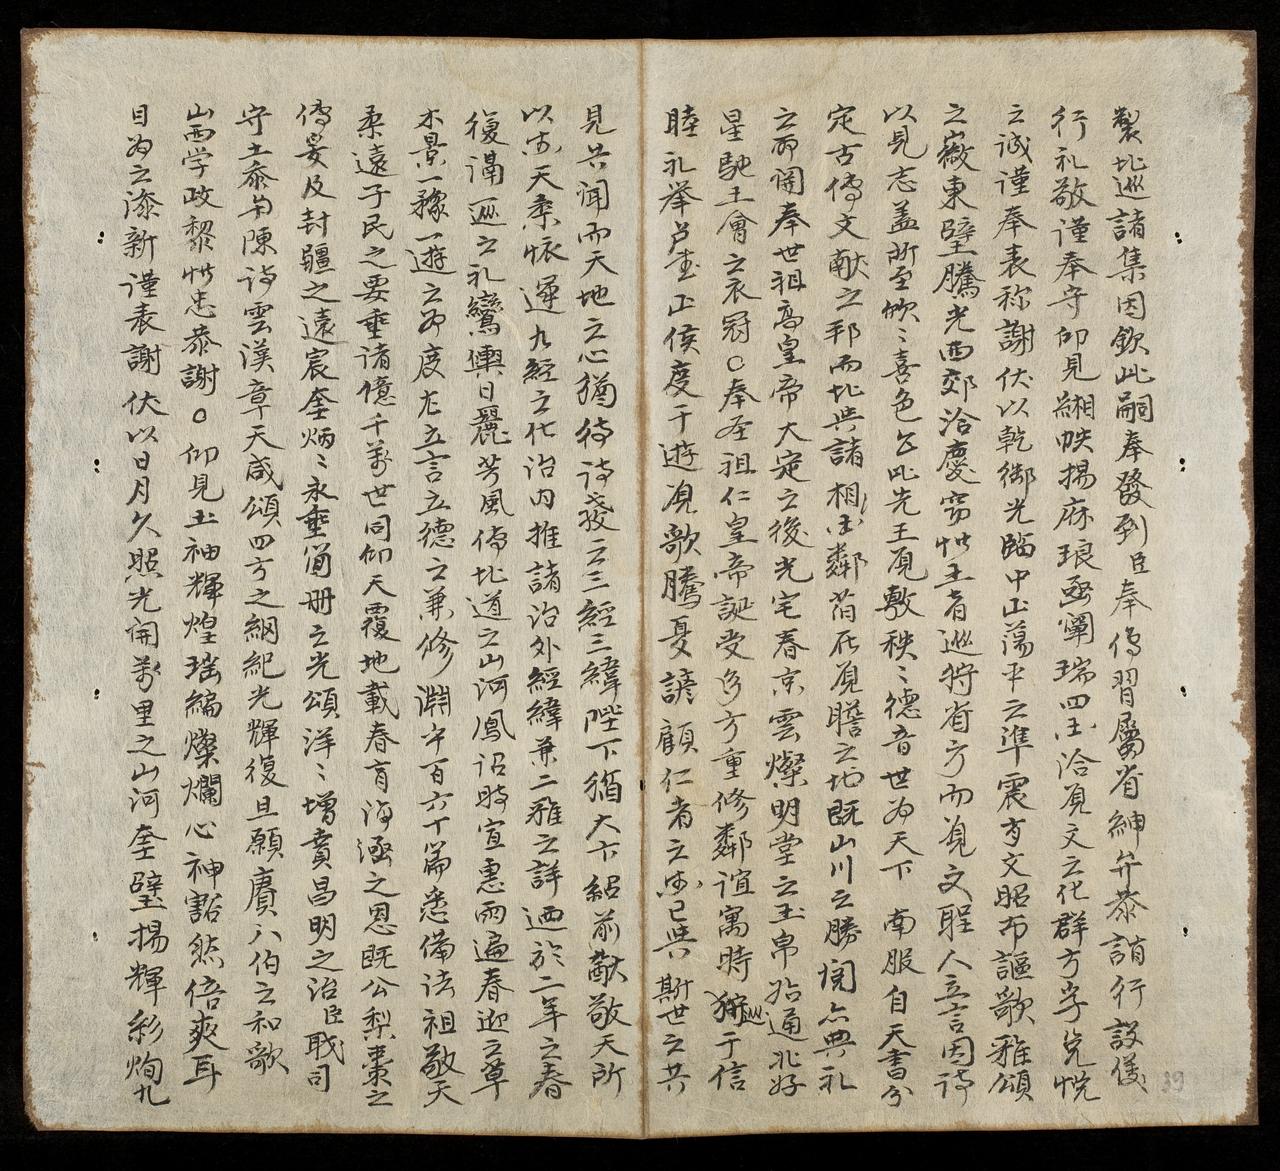 製北巡諸集因欽此嗣奉發到臣奉傳習屬省紳弁恭詣行設儀
行礼敬謹奉守仰見緗帙揚庥琅函闡瑞四国洽覓文之化群方孚兌悅
之誠謹奉表称謝伏以乾御光臨中山蕩平之準震方文昭布謳歌雅頌
之徽東壁騰光西郊洽慶窃惟王者巡狩省方而覓文聖人立言因詩
以見志盖所至欣〻喜色乞此先王覓敷秩〻德音世为天下 南服自天書分
定古傳文献之邦而北與諸相国鄰省在覓瞻之地既山川之勝闵点典礼
之所関奉世祖高皇帝大定之後光宅春京雲燦明堂之玉帛始通北好
星馳王會之衣冠○奉圣祖仁皇帝誕受多方重修鄰誼寓時巡于信
睦礼举 正侯度于遊覓歌騰夏諺顧仁者之 已與斯世之共
見共闻而天地之心猶待詩發之三經三緯陛下猶大下紹前猷敬天所
以 天柔怀遲九經之化治内推諸治外經緯兼二雅之詳迺於二年之春
復講巡之礼鸞輿日麗芳風傳北道之山河鳳诏時宣惠雨遍春迎之草
木景一豫一遊之为度尤立言立德之兼修淵乎百六十篇悉備法祖敬天
柔遠子民之要垂诸億千萬世同仰天覆地載春育海涵之恩既公梨棗之
傳爰及封疆之遠宸奎炳〻永垂简冊之光頌洋〻增賁昌明之治臣职司
守土忝 陳诗雲漢章天咸頌四方之綱紀光輝復旦願賡八伯之和歌
山西学政黎惟忠恭謝○仰見玉袖輝煌瑶编燦爛心神豁然倍爽耳
目为之添新謹表謝 伏以日月久照光開萬里之山河奎璧揚輝彩炳九